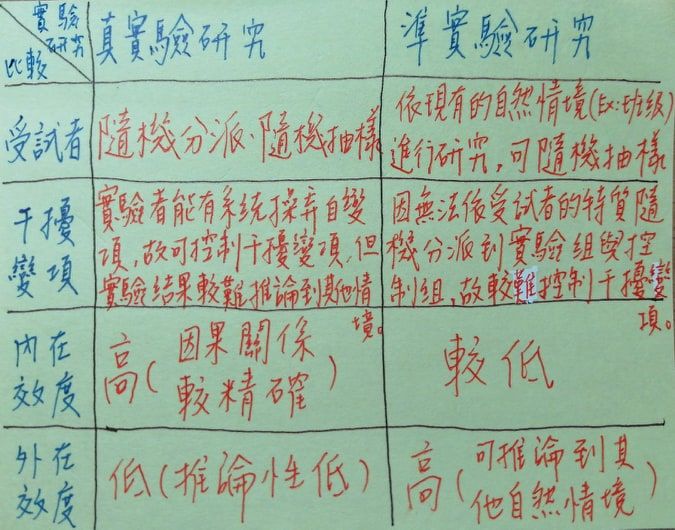 實驗研究
比較
真實驗研究
準實驗研究
受試者
隨機分派、隨機抽樣
依現有的自然情境(Ex:班級)
進行研究,可隨機抽樣
干擾
變項
實驗者能有系統操弄自變
項,故可控制干擾變項,但
實驗結果較難推論到其他情
境。
因無法依受試者的特質隨
機分派到實驗組與控
制組,故較難控制干擾變
項。
內在
效度
高(因果關係
較精確)
較低
外在
效度
低(推論性低)
高(可推論到其
他自然情境)